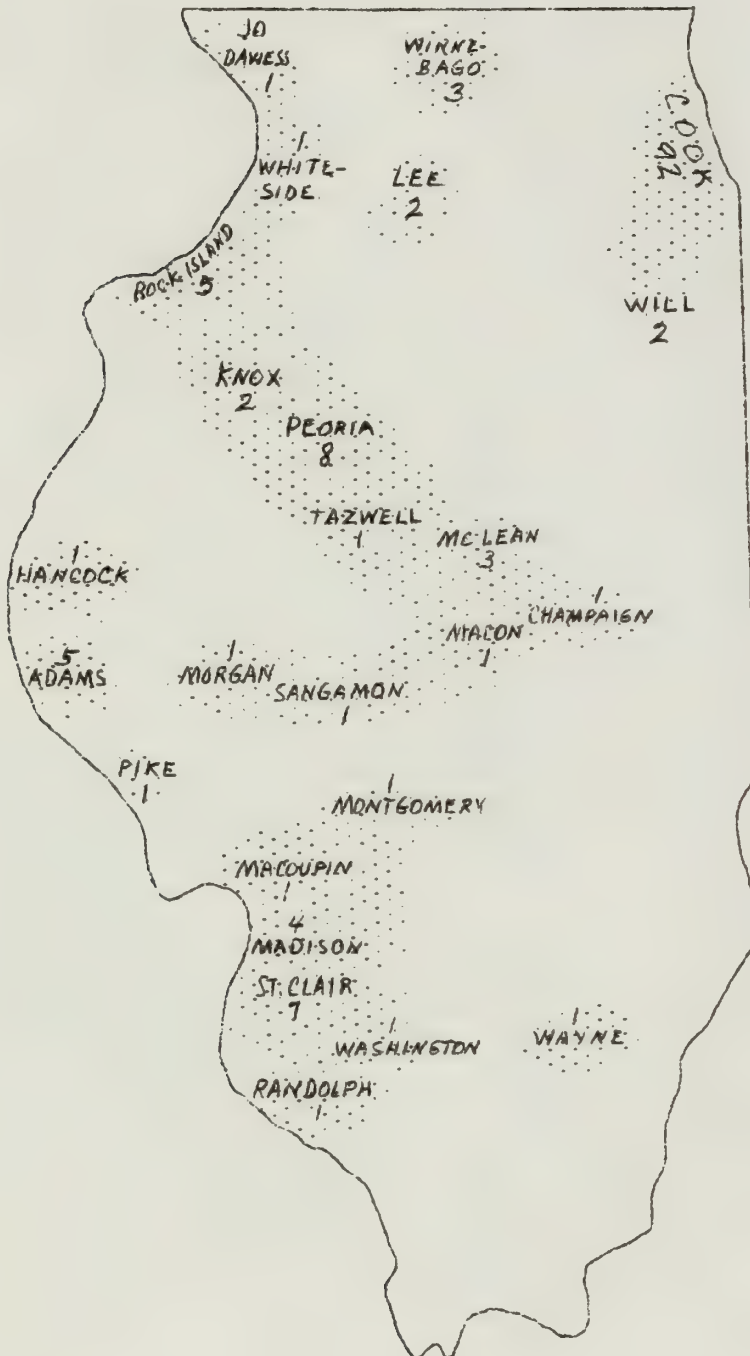 JO
DAWESS
1
WINNE-
BAGO
3
COOK
92
1
WHITE-
SIDE
LEE
2
ROCK ISLAND
5
WILL
2
KNOX
2
PEORIA
8
TAZWELL
1
MCLEAN
3
1
HANCOCK
1
CHAMPAIGN
MACON
1
5
ADAMS
1
MORGAN
SANGAMON
1
PIKE
1
1
MONTGOMERY
MACOUPIN
1
4
MADISON
ST. CLAIR
7
1
WASHINGTON
1
WAYNE
RANDOLPH
1